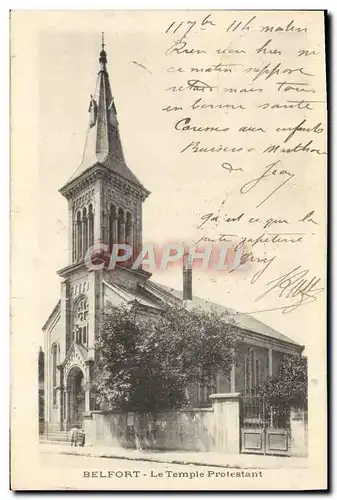 11 7bre 11h matin
Rien reçu hier ni
ce matin suppose
retard mais tous
en bonne santé
Caresses aux enfants
Baisers à Marthe
de Jean
Qu'est ce que la
CPARAMA
BELFORT - Le Temple Protestant